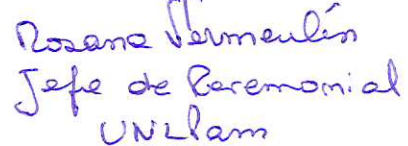 Rosana Vermeulén
Jefe de Ceremonial
UNLPam